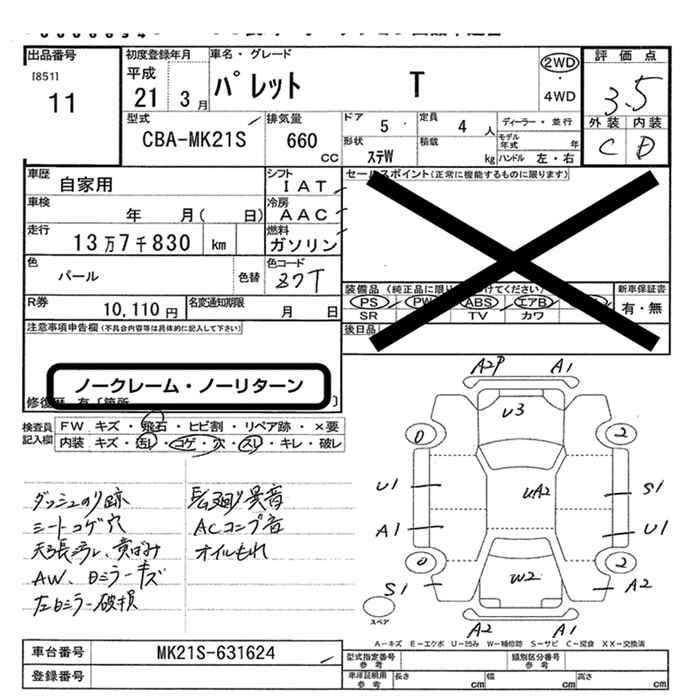 出品番号
[851]
11
初度登録年月
平成
21 3月
車名・グレード
パレット T
2WD
・
4WD
評価点
3.5
外装 内装
C D
型式
CBA-MK21S
排気量
660
CC
ドア
5
定員
4 人
形状
ステW
積載
kg
ディーラー・並行
モデル年式 年
ハンドル 左・右
車歴
自家用
シフト
IAT
車検
年 月( 日)
冷房
AAC
走行
13万7千830 km
燃料
ガソリン
色
パール
色替
色コード
Z7T
R券
10,110円
名変通知期限
月 日
セールスポイント(正常に機能するものに限ります)
装備品
PS PW ABS エアB
SR TV カワ
新車保証書
有・無
後日品
注意事項申告欄(不具合内容等は具体的に記入して下さい)
ノークレーム・ノーリターン
検査員
記入欄
FW キズ・飛石・ヒビ割・リペア跡・×要
内装 キズ・汚レ・コゲ・穴・スレ・キレ・破レ
ダッシュのり跡
シートコゲ穴
天張汚レ、黄ばみ
AW、Bミラーキズ
左Bミラー破損
異音
ACコンプ音
オイルもれ
A2P A1
U3
0 2
U1 UA2 S1
A1 U1
0 2
S1 W2 A2
スペア
A2 A1
A-キズ E-エクボ U-凹み W-補修跡 S-サビ C-腐食 XX-交換済
車台番号
MK21S-631624
登録番号
型式指定番号
参考
類別区分番号
参考
車庫証明用
参考
長さ cm 幅 cm 高さ cm